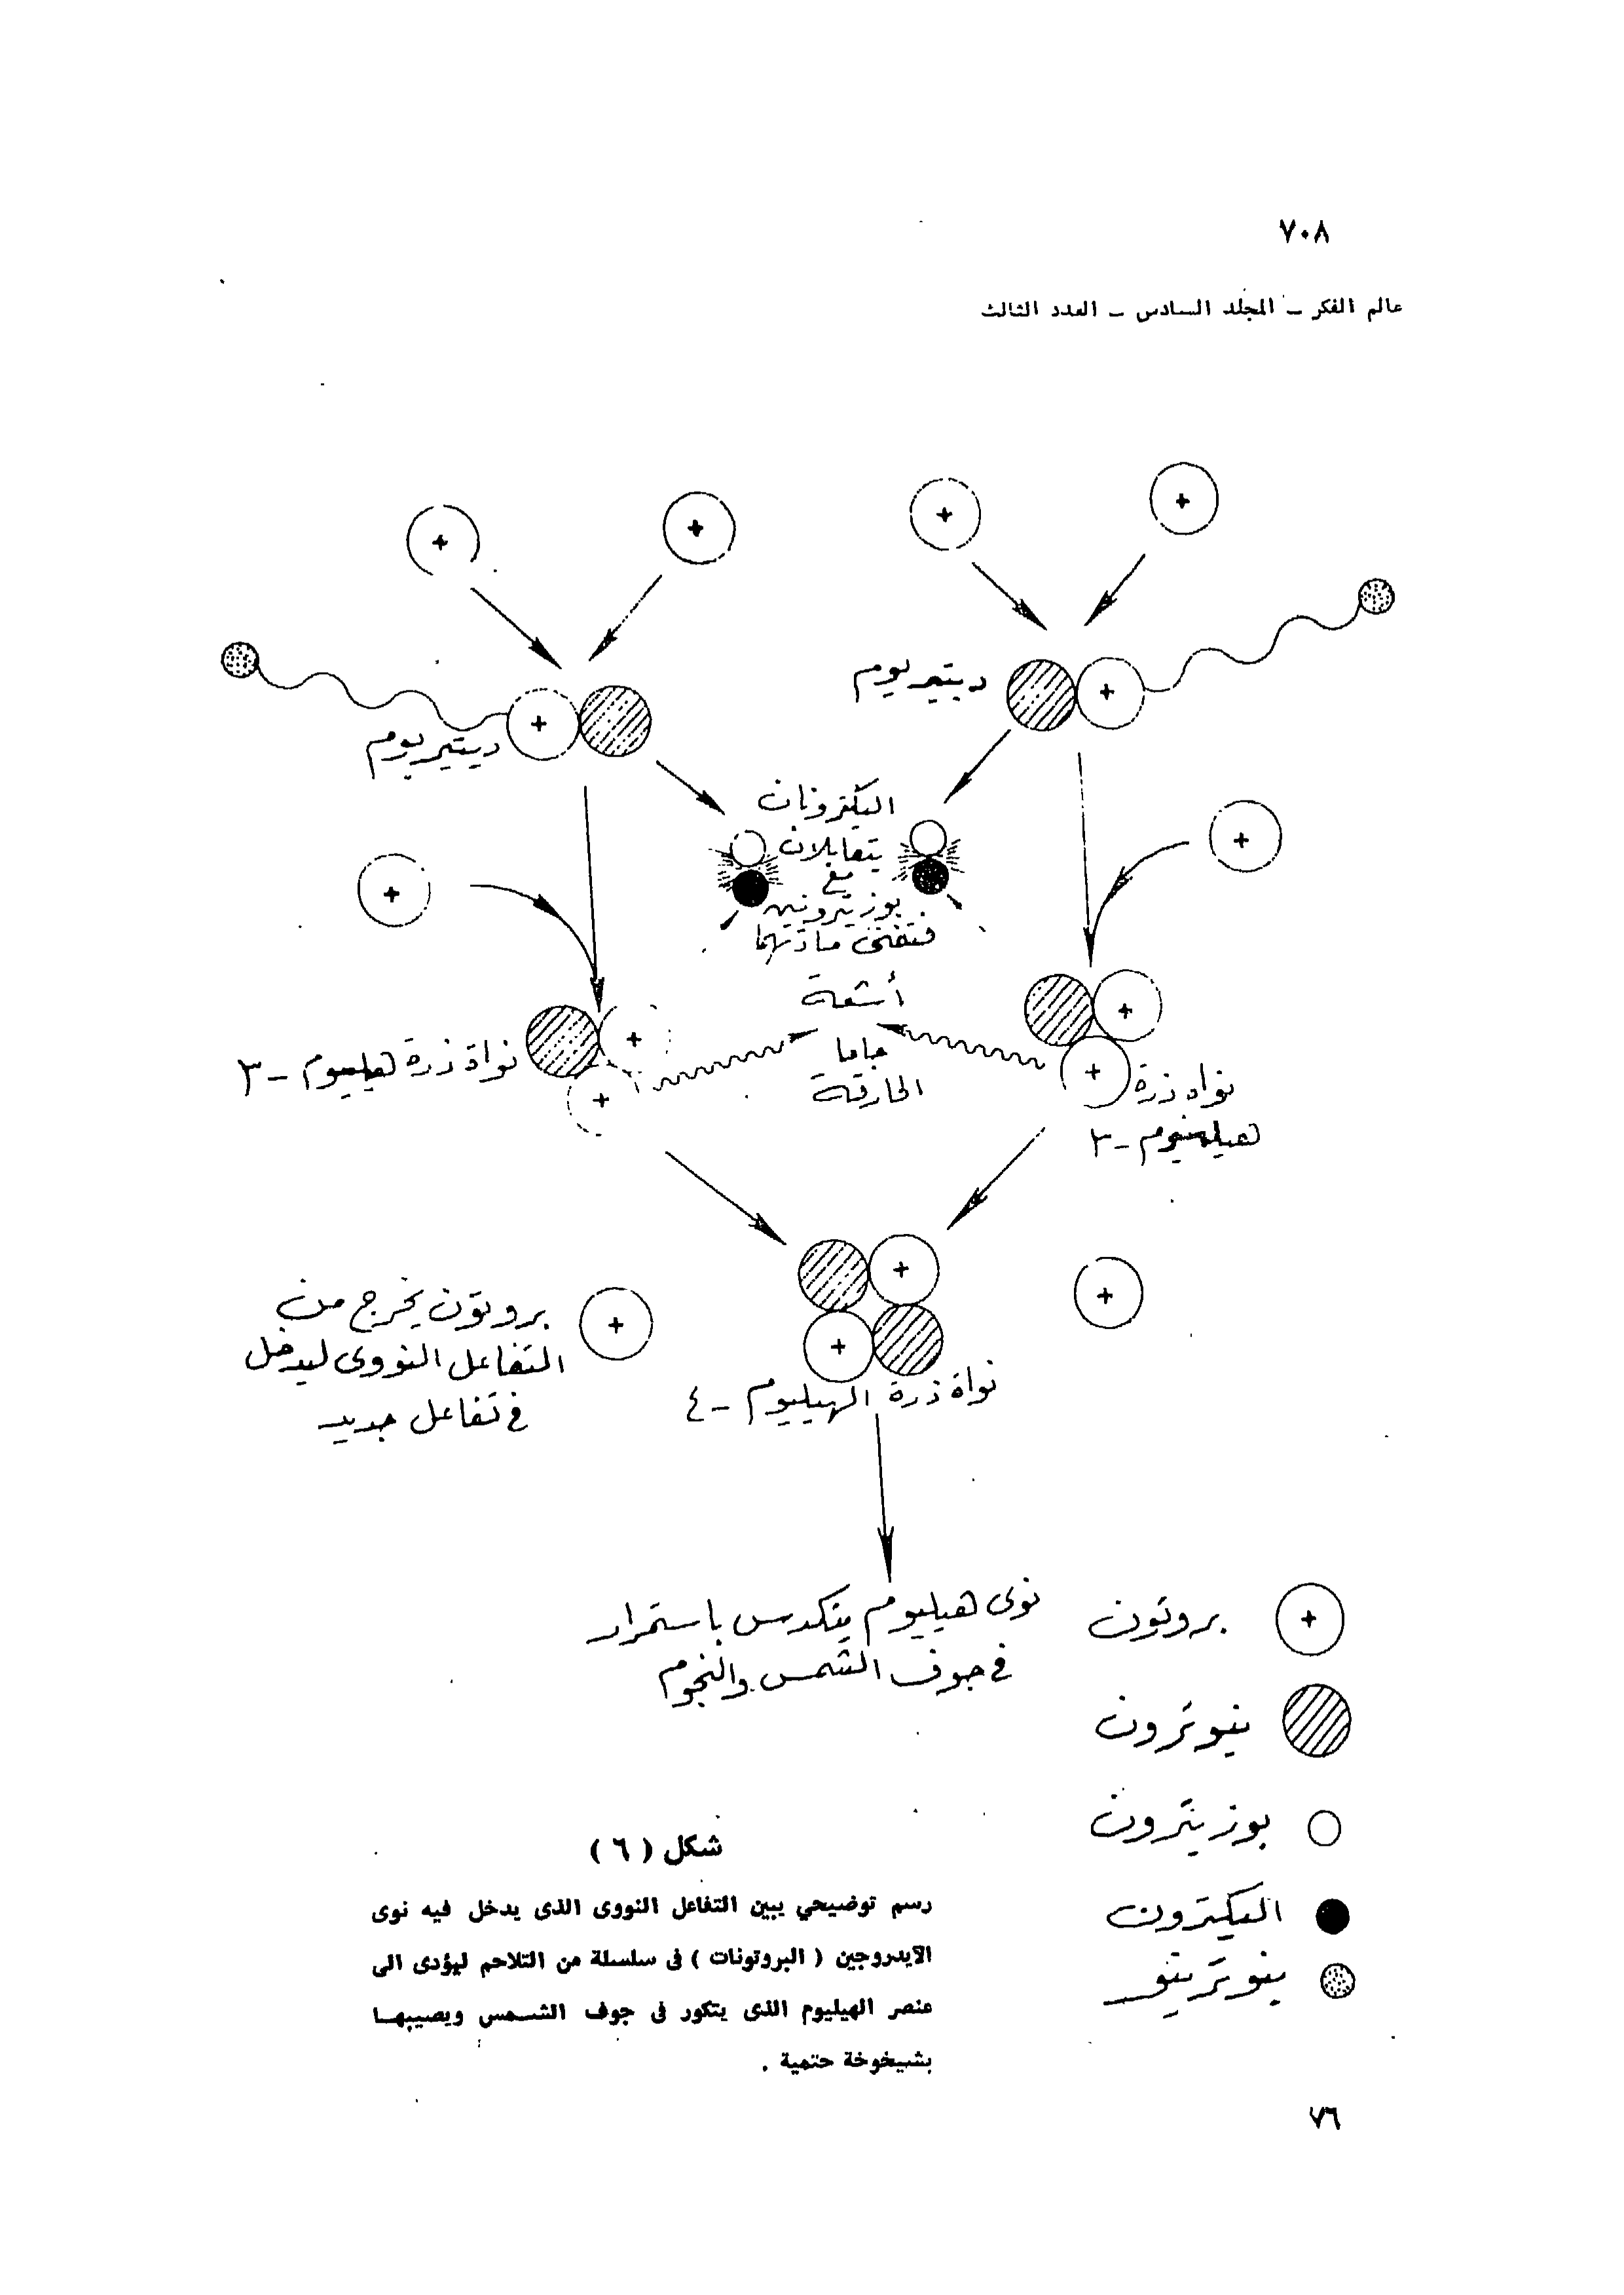 ٧٠٨
عالم الفكر – المجلد السادس – العدد الثالث
+
+
+
+
ديتيريوم
+
ديتيريوم
+
اليكترونان
يتقابلان
مع
بوزيترونين
فتفنى مادتهما
+
+
أشعة
جاما
الخارقة
+
+
نواه ذرة
هيليوم – ٣
+
+
نواة ذرة هيليوم – ٣
+
+
نواة ذرة الهيليوم – ٤
+
+
بروتون يخرج من
التفاعل النووى ليدخل
في تفاعل جديد
+
نوى هيليوم يتكدس باستمرار
في جوف الشمس والنجوم
+
بروتون
نيوترون
بوزيترون
اليكترون
نيوترينو
شكل ( ٦ )
رسم توضيحي يبين التفاعل النووى الذى يدخل فيه نوى
الايدروجين ( البروتونات ) فى سلسلة من التلاحم ليؤدى الى
عنصر الهيليوم الذى يتكور فى جوف الشمس ويصيبها
بشيخوخة حتمية .
٧٦